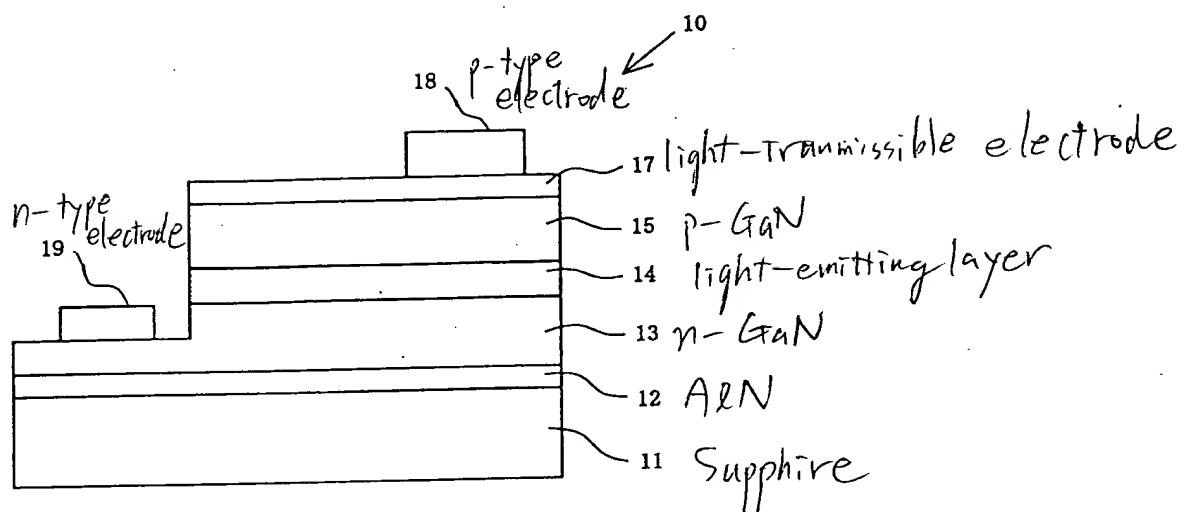 10
p-type
electrode
18
17 light-Tranmissible electrode
n-type
electrode
19
15 p-GaN
14 light-emitting layer
13 n-GaN
12 AlN
11 Supphire